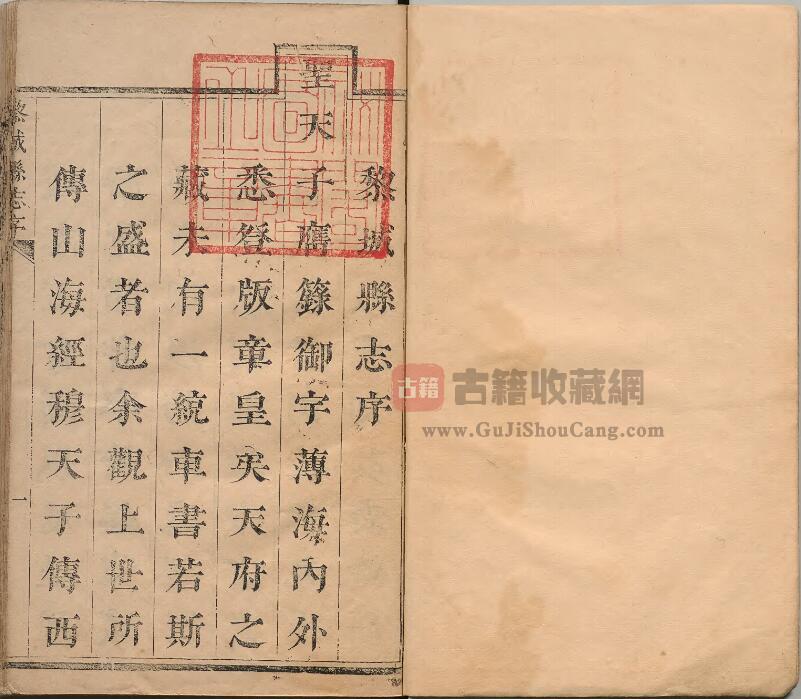 黎城縣志序
聖天子膺籙御宇薄海內外
悉登版章皇矣天府之
藏未有一統車書若斯
之盛者也余觀上世所
傳山海經穆天子傳西
黎城縣志序
一
古籍
古籍收藏網
www.GuJiShouCang.com